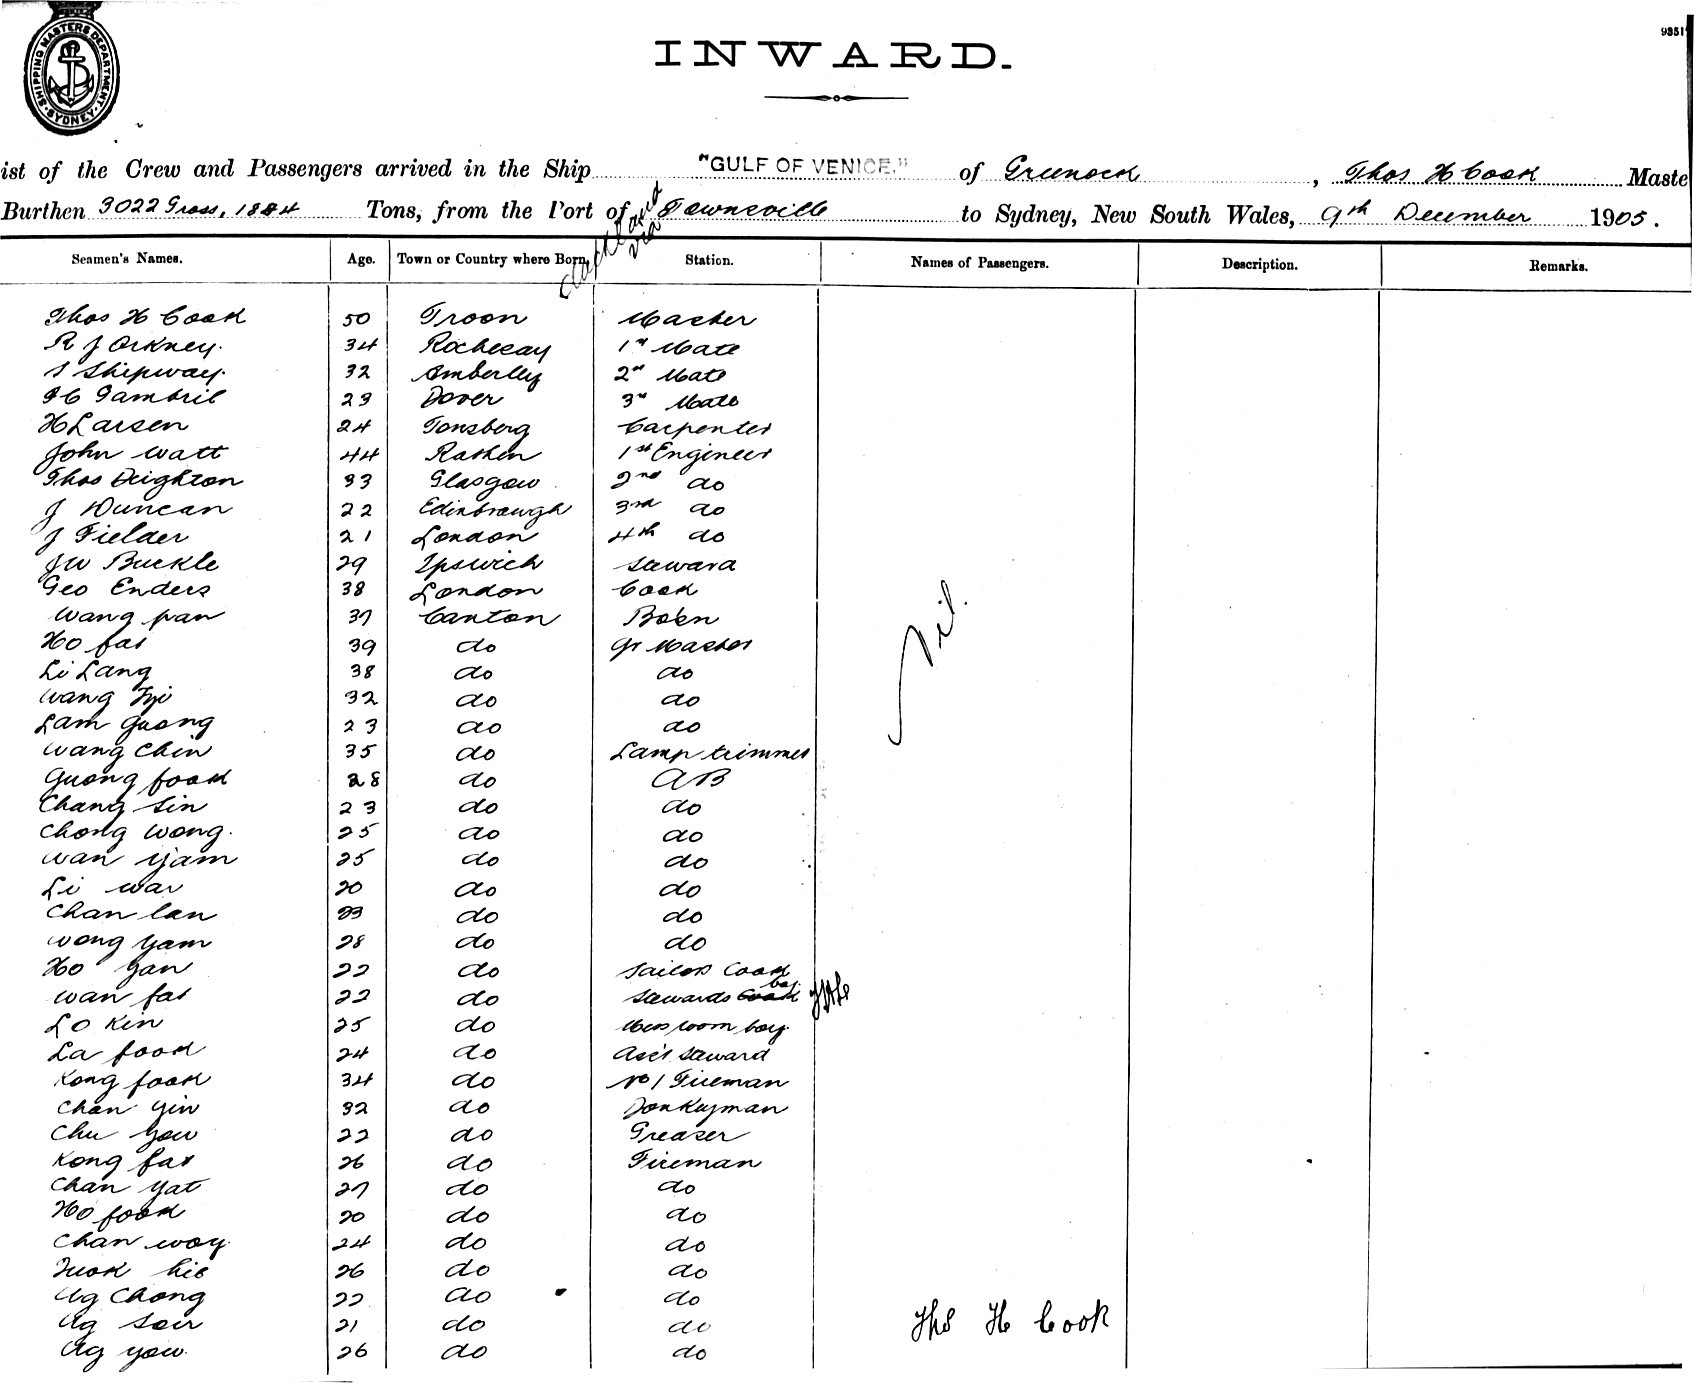 SHIPPING MASTERS DEPARTMENT. SYDNEY.
9351
INWARD.
ist of the Crew and Passengers arrived in the Ship "GULF OF VENICE." of Greenock, Thos H Cook Maste
Burthen 3022 Gross, 1884 Tons, from the Port of Auckland via Townsville to Sydney, New South Wales, 9th December 1905.
Seamen's Names. Age. Town or Country where Born. Station. Names of Passengers. Description. Remarks.
Thos H Cook 50 Troon Master
R J Orkney. 34 Rothesay 1st Mate
S Shipway. 32 Amberley 2nd Mate
Gambril 23 Dover 3rd Mate
H Larsen 24 Tonsberg Carpenter
John Watt 44 Rathen 1st Engineer
Thos Deighton 33 Glasgow 2nd do
J Duncan 22 Edinbrough 3rd do
J Fielder 21 London 4th do
JW Buckle 29 Ipswich Steward
Geo Enders 38 London Cook
Wang pan 37 Canton Bo'sn
Ho fat 39 do Qr Master
Li Lang 38 do do
Wang 32 do do
Lam Quong 23 do do
Wang Chin 35 do Lamp trimmer
Quong fook 28 do AB
Chang Sin 23 do do
Chong Wong. 25 do do
Wan Yam 25 do do
Li Wai 20 do do
Chan lan 23 do do
Wong Yam 28 do do
Ho Yan 22 do Sailors Cook
Wan fat 22 do Stewards Cook boy THC
Lo Kin 25 do Mess room boy.
La fook 24 do Ass't Steward
Kong fook 34 do No 1 Fireman
Chan Yin 32 do Donkeyman
Chu Yow 22 do Greaser
Kong fat 26 do Fireman
Chan Yat 27 do do
Ho fook 20 do do
Chan woy. 24 do do
hie 26 do do
Ug Chong 22 do do
Ug Soir 21 do do
Ug yow. 26 do do
Nil.
Ths H Cook